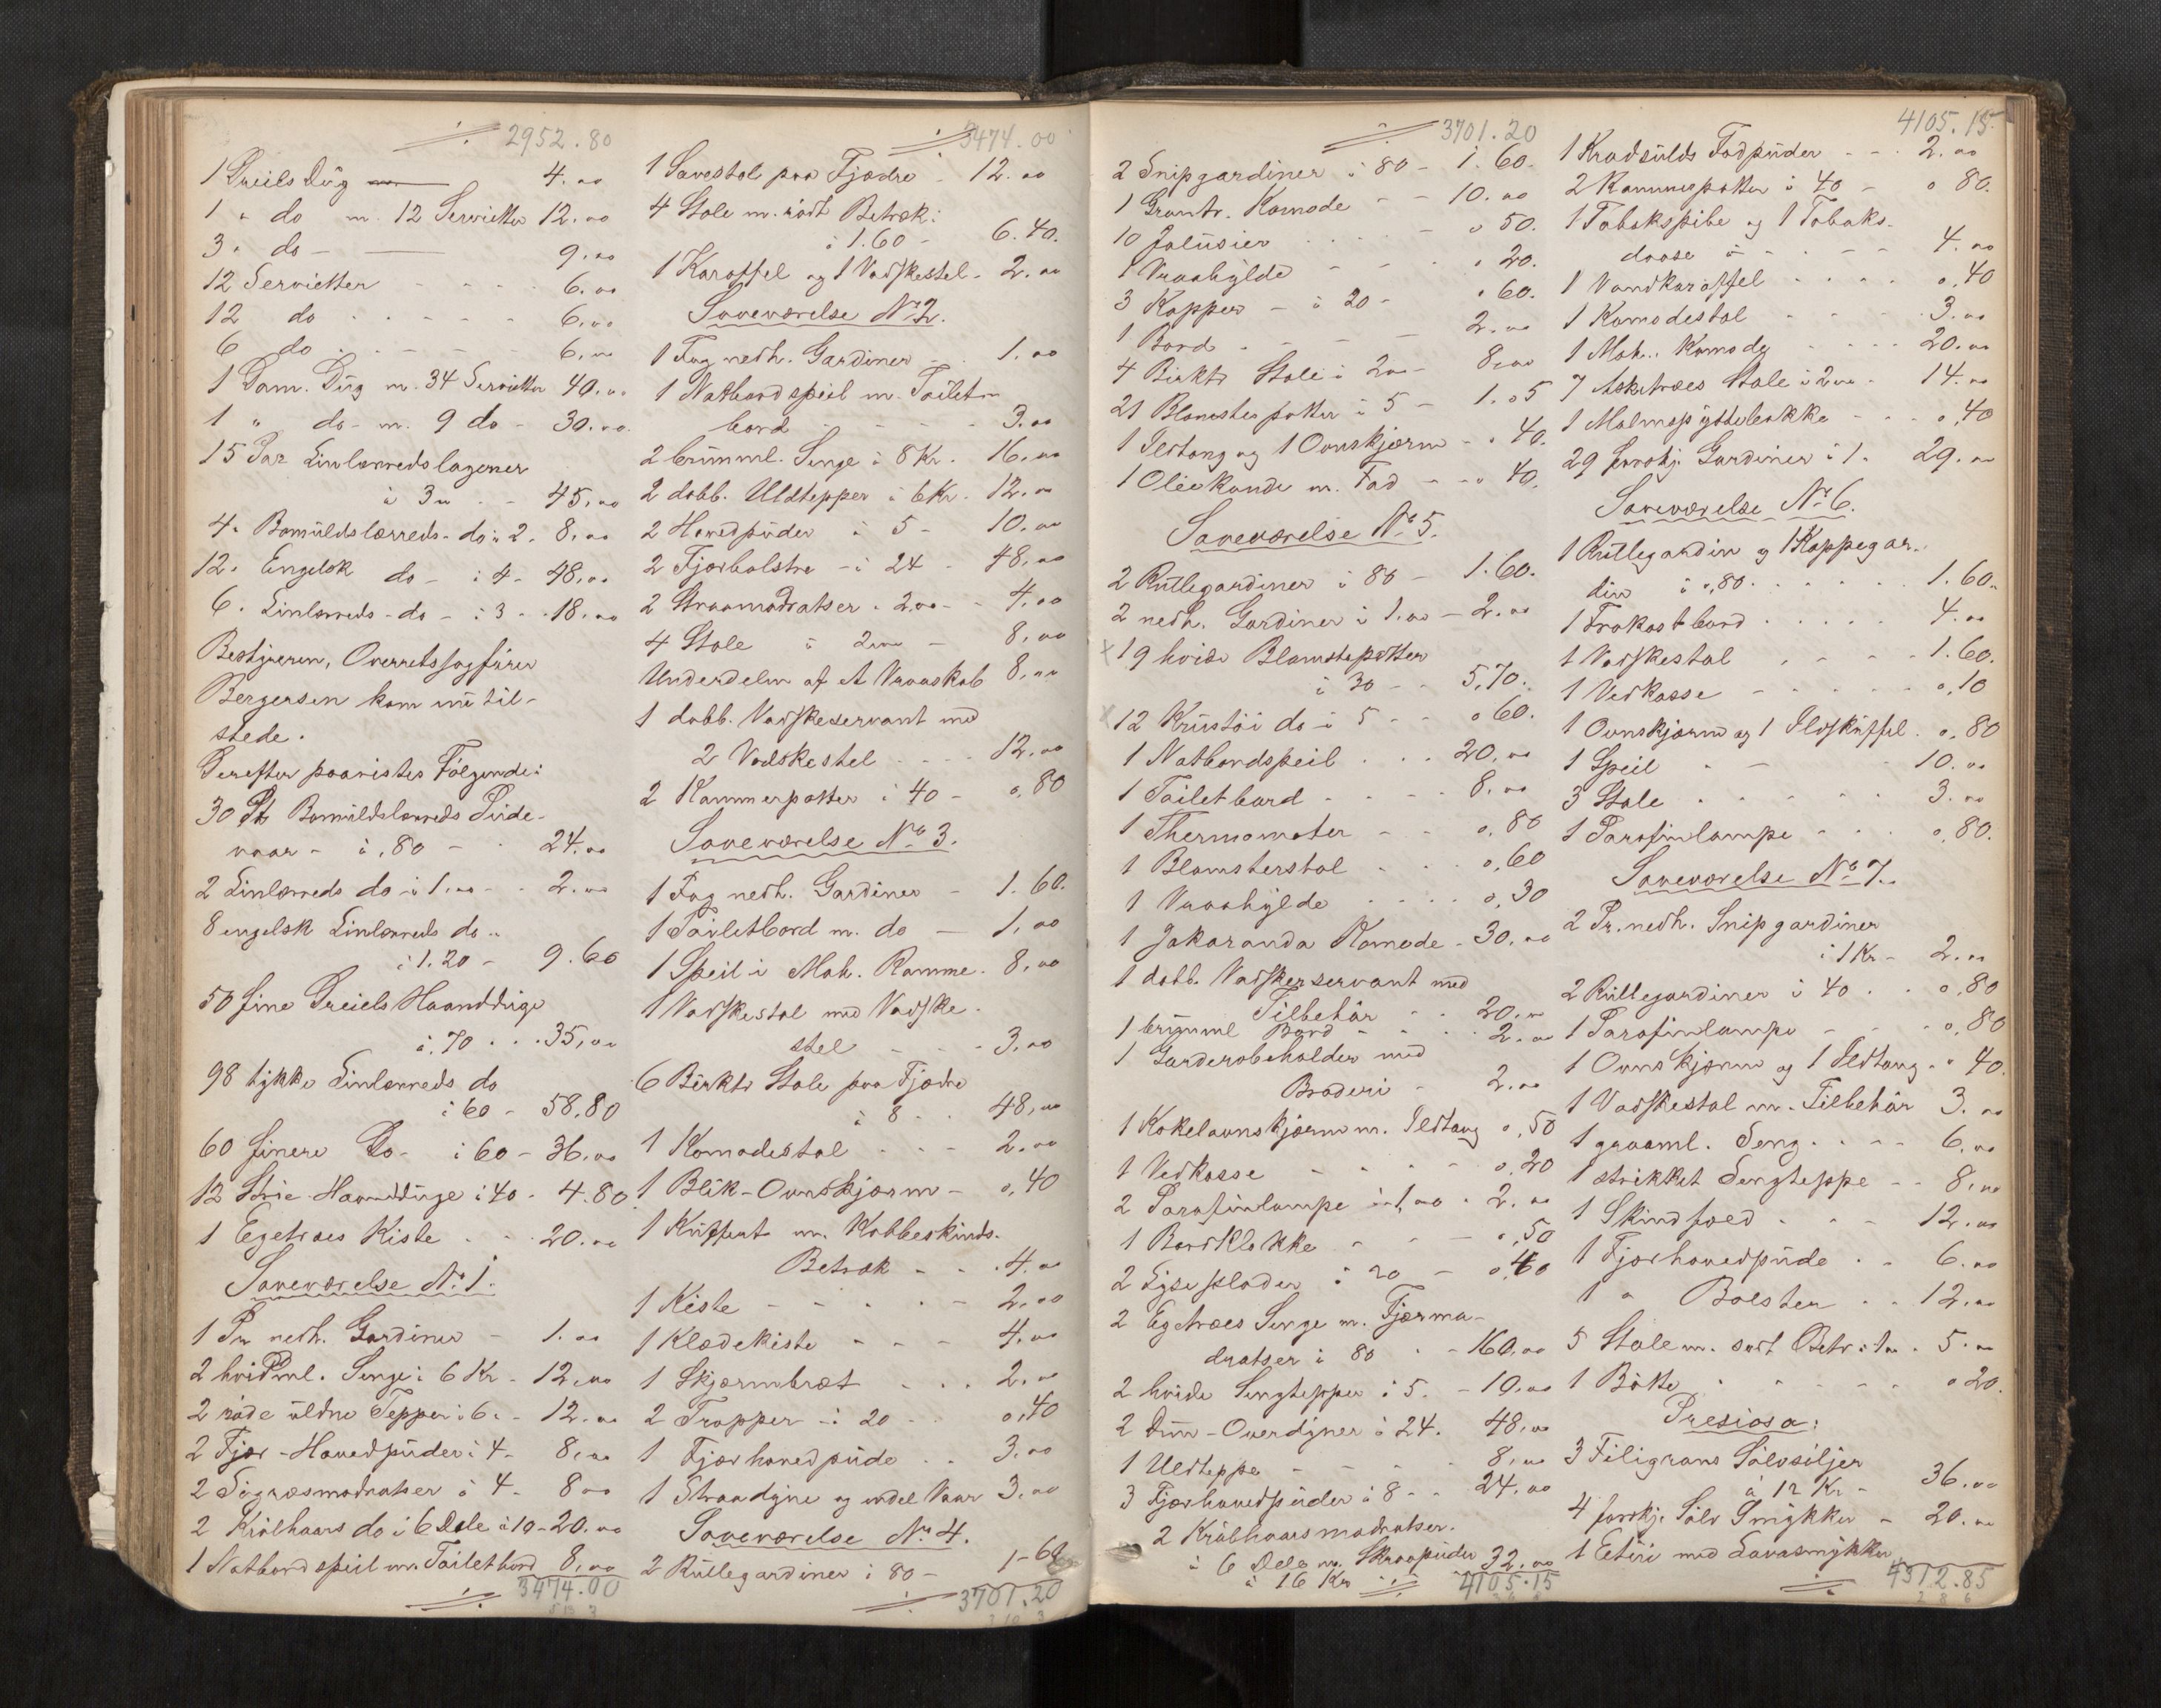 2952.80
1 Dreils Dug 4.00
1 " do m. 12 Servietter 12.00
3 " do 9.00
12 Servietter 6.00
12 do 6.00
6 do 6.00
1 Dam. Dug m. 34 Servietter 40.00
1 " do m. 9 do 30.00
15 Par Linlærredslagener
à 3 45.00
4 " Bomuldslærreds do à 2 8.00
12 " Engelsk do à 4 48.00
6 " Linlærreds do à 3 18.00
Bestyreren, Overretssagfører
Bergersen kom nu til-
stede.
Derefter paavistes Følgende:
30 St. Bomuldslærreds Pude-
vaar à ,80 24.00
2 Linlærreds do à 1.00 2.00
8 engelsk Linlærreds do
à 1.20 9.60
50 fine Dreiels Haandduge
à ,70 35.00
98 tykke Linlærreds do
à 60 58,80
60 finere Do à 60 36.00
12 Strie Haandduge à 40 4.80
1 Egetræes Kiste 20.00
Soveværelse No 1.
1 Pr nedh. Gardiner 1.00
2 hvidml. Senge à 6 Kr 12.00
2 røde uldne Tepper à 6 12.00
2 Fjær-Hovedpuder à 4 8.00
2 Søgræsmadratser à 4 8 00
2 Krølhaars do i 6 Dele à 10 20.00
1 Natbordspeil m. Toiletbord 8.00
3474.00
3474.00
1 Sovestol paa Fjædre 12.00
4 Stole m. rødt Betræk:
à 1.60 6.40.
1 Karaffel og 1 Vadskestel 2.00
Soveværelse No 2.
1 Fag nedh. Gardiner 1.00
1 Natbordspeil m. Toilet-
bord 3.00
2 bruunml. Senge à 8 Kr. 16.00
2 dobb. Uldtepper à 6 Kr. 12.00
2 Hovedpuder à 5 10.00
2 Fjærbolstre à 24 48.00
2 Straamadratser à 2.00 4.00
4 Stole à 2.00 8.00
Underdelen af et Vraaskab 8.00
1 dobb. Vadskeservant med
2 Vadskestel 12.00
2 Kammerpotter à 40 0,80
Soveværelse No 3.
1 Fag nedh. Gardiner 1.60.
1 Toiletbord m. do 1.00
1 Speil i Mah. Ramme 8.00
1 Vadskestol med Vadske-
stel 3.00
6 Birktr Stole paa Fjædre
à 8 48.00
1 Komodestol 2.00
1 Blik-Ovnskjærm 0,40
1 Kuffert m. Kobbeskinds-
Betræk 4.00
1 Kiste 2.00
1 Klædekiste 4.00
1 Skjærmbræt 2.00
2 Trapper à 20 0,40
1 Fjærhovedpude 3.00
1 Straadyne og endel Vaar 3.00
Soveværelse No 4.
2 Rullegardiner à 80 1-60
3701.20
3701.20
2 Snipgardiner à 80 1.60.
1 Grantr. Komode 10.00
10 Jalusier 0 50.
1 Vraahylde 0 20.
3 Kopper à 20 0 60.
1 Bord 2.00
4 Birktr Stole à 2.00 8.00
21 Blomsterpotter à 5 1.05
1 Ildtang og 1 Ovnskjærm 0 40.
1 Oliekande m. Fad 0 40.
Soveværelse No 5.
2 Rullegardiner à 80 1.60.
2 nedh. Gardiner à 1.00 2.00
x 19 hvide Blomstepotter
à 30 5,70.
x 12 Krustøi do à 5 0 60.
1 Natbordspeil 20.00
1 Toiletbord 8.00
1 Thermometer 0,80
1 Blomsterstol 0,60
1 Vraahylde 0,30
1 Jakaranda Komode 30.00
1 dobb. Vadskerservant med
Tilbehør 20.00
1 brunml Bord 2.00
1 Garderobeholder med
Broderi 2.00
1 Kakelovnskjærm m. Ildtang 0,50
1 Vedkasse 0,20
2 Parafinlampe à 1.00 2.00
1 Bordklokke 0,50
2 Lyseplader à 20 0,40
2 Egetræes Senge m. Fjærma-
dratser à 80 160.00
2 hvide Sengtepper à 5. 10.00
2 Dun-Overdyner à 24. 48.00
1 Uldteppe 8.00
3 Fjærhovedpuder à 8 24.00
2 Krølhaarsmadratser
i 6 Dele m. Skraapuder
à 16 Kr 32.00
4105.15
4105.15
1 Krudsulds Fodpuder 2.00
2 Kammerpotter à 40 0 80.
1 Tobakspibe og 1 Tobaks-
daase 4.00
1 Vandkaraffel 0,40
1 Komodestol 3.00
1 Mah. Komode 20.00
7 Asketræes Stole à 2.00 14.00
1 Malmspyttebakke 0,40
29 forskj. Gardiner à 1. 29.00
Soveværelse No 6.
1 Rullegardin og 1 Kappegar-
din à 0,80 1.60.
1 Frokostbord 4.00
1 Vadskestol 1.60.
1 Vedkasse 0,10
1 Ovnskjærm og 1 Ildskuffel 0,80
1 Speil 10.00
3 Stole 3.00
1 Parafinlampe 0,80.
Soveværelse No 7.
2 Pr. nedh. Snipgardiner
à 1 Kr 2.00
2 Rullegardiner à 40 0,80
1 Parafinlampe 0,80
1 Ovnskjærm og 1 Ildtang 0 40.
1 Vadskestol m. Tilbehør 3.00
1 graaml. Seng 6.00
1 strikket Sengteppe 8.00
1 Skindfæld 12.00
1 Fjærhovedpude 6.00
1 " Bolster 12.00
5 Stole m. sort Betr. à 1.00 5.00
1 Bøtte 0 20.
Presiosa:
3 Filigrans Sølvsøljer
à 12 Kr 36.00
4 forskj. Sølv Smykker 20.00
1 Etui med Lavasmykker
4312.85